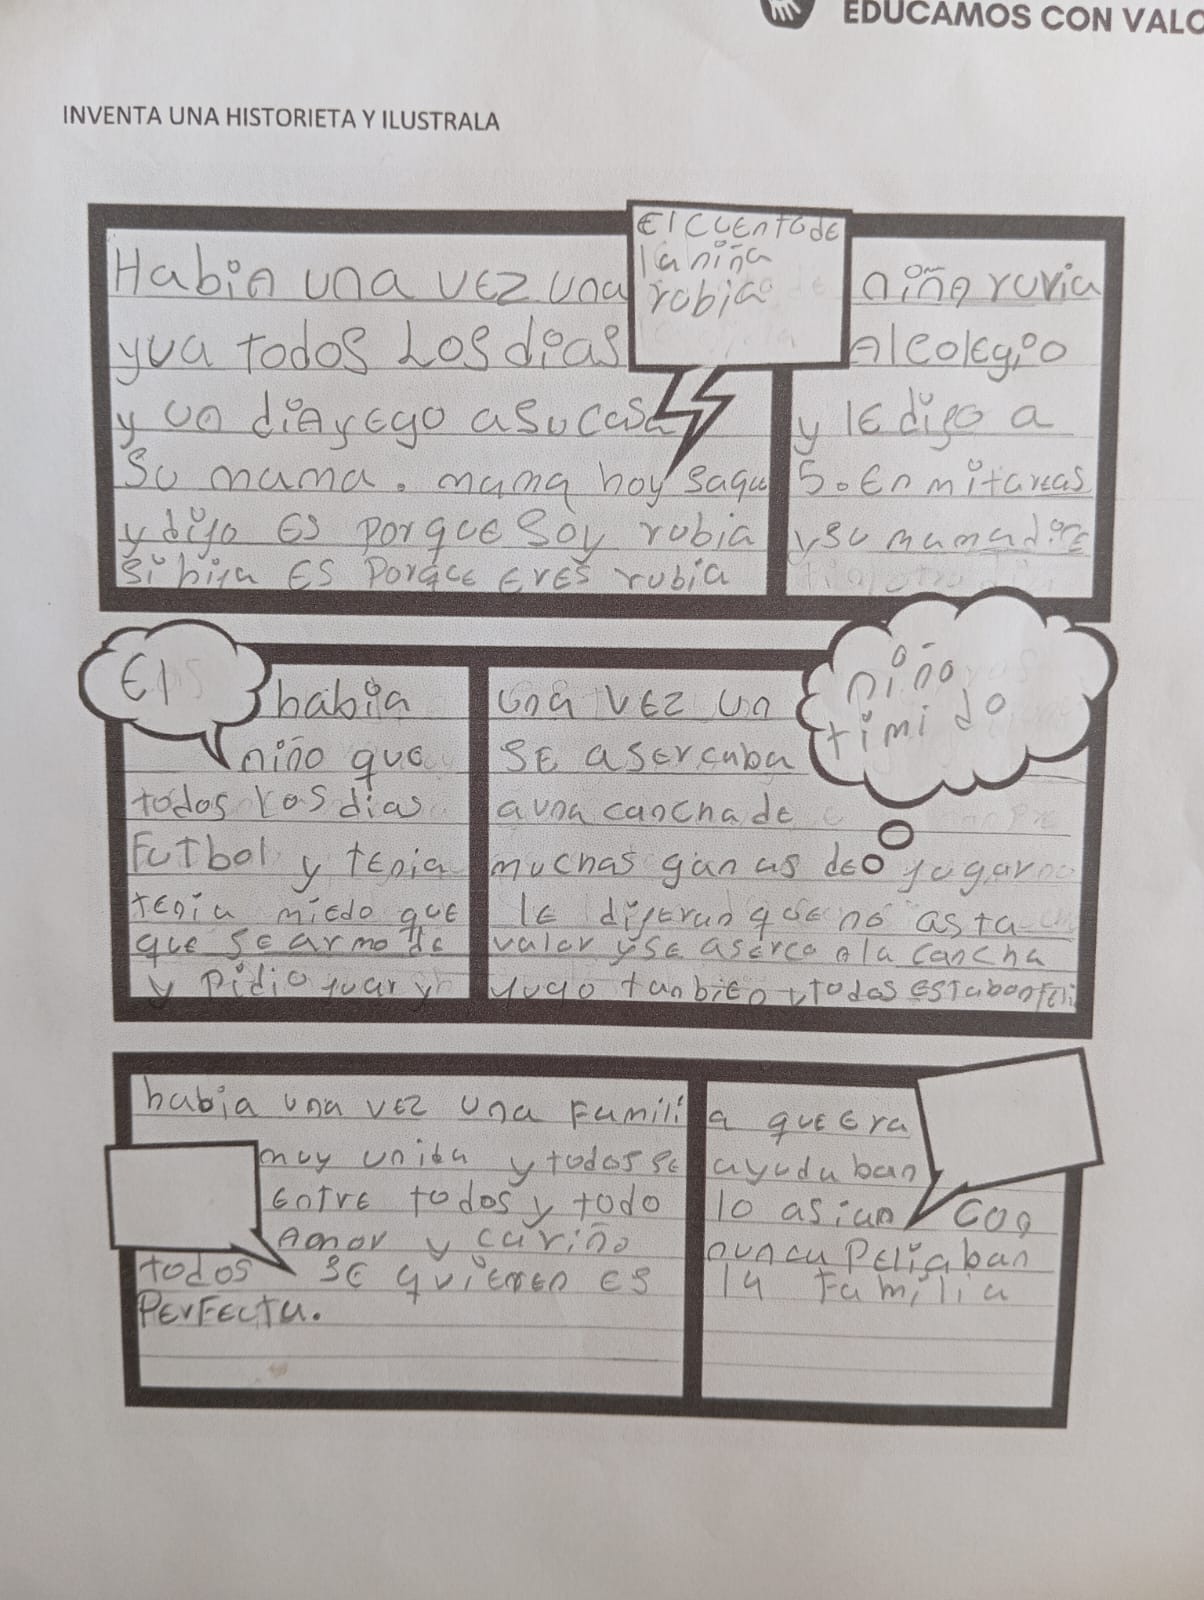 EDUCAMOS CON VALO
INVENTA UNA HISTORIETA Y ILUSTRALA
El cuento de
la niña
robia
Habia una vez una niña ruvia
yua todos Los dias Al colegio
y un dia yego a su casa y le dijo a
su mama. mama hoy saque 5.0 En mi tareas
y dijo Es porque Soy rubia y su mama dice
si hija Es Porqce Eres rubia
El niño
timido
habia una vez un
niño que se asercaba
todos Los dias a una cancha de
Futbol y tenia muchas ganas de yugar
tenia miedo que le dijeran que no asta
que se armo de valor y se aserco a la cancha
y pidio yuar y yugo tanbien y todos estabon feli
habia una vez una Familia que Era
muy unida y todos se ayudaban
Entre todos y todo lo asian con
Amor y cariño nunca Peliaban
todos se quieren es la familia
PerFecta.